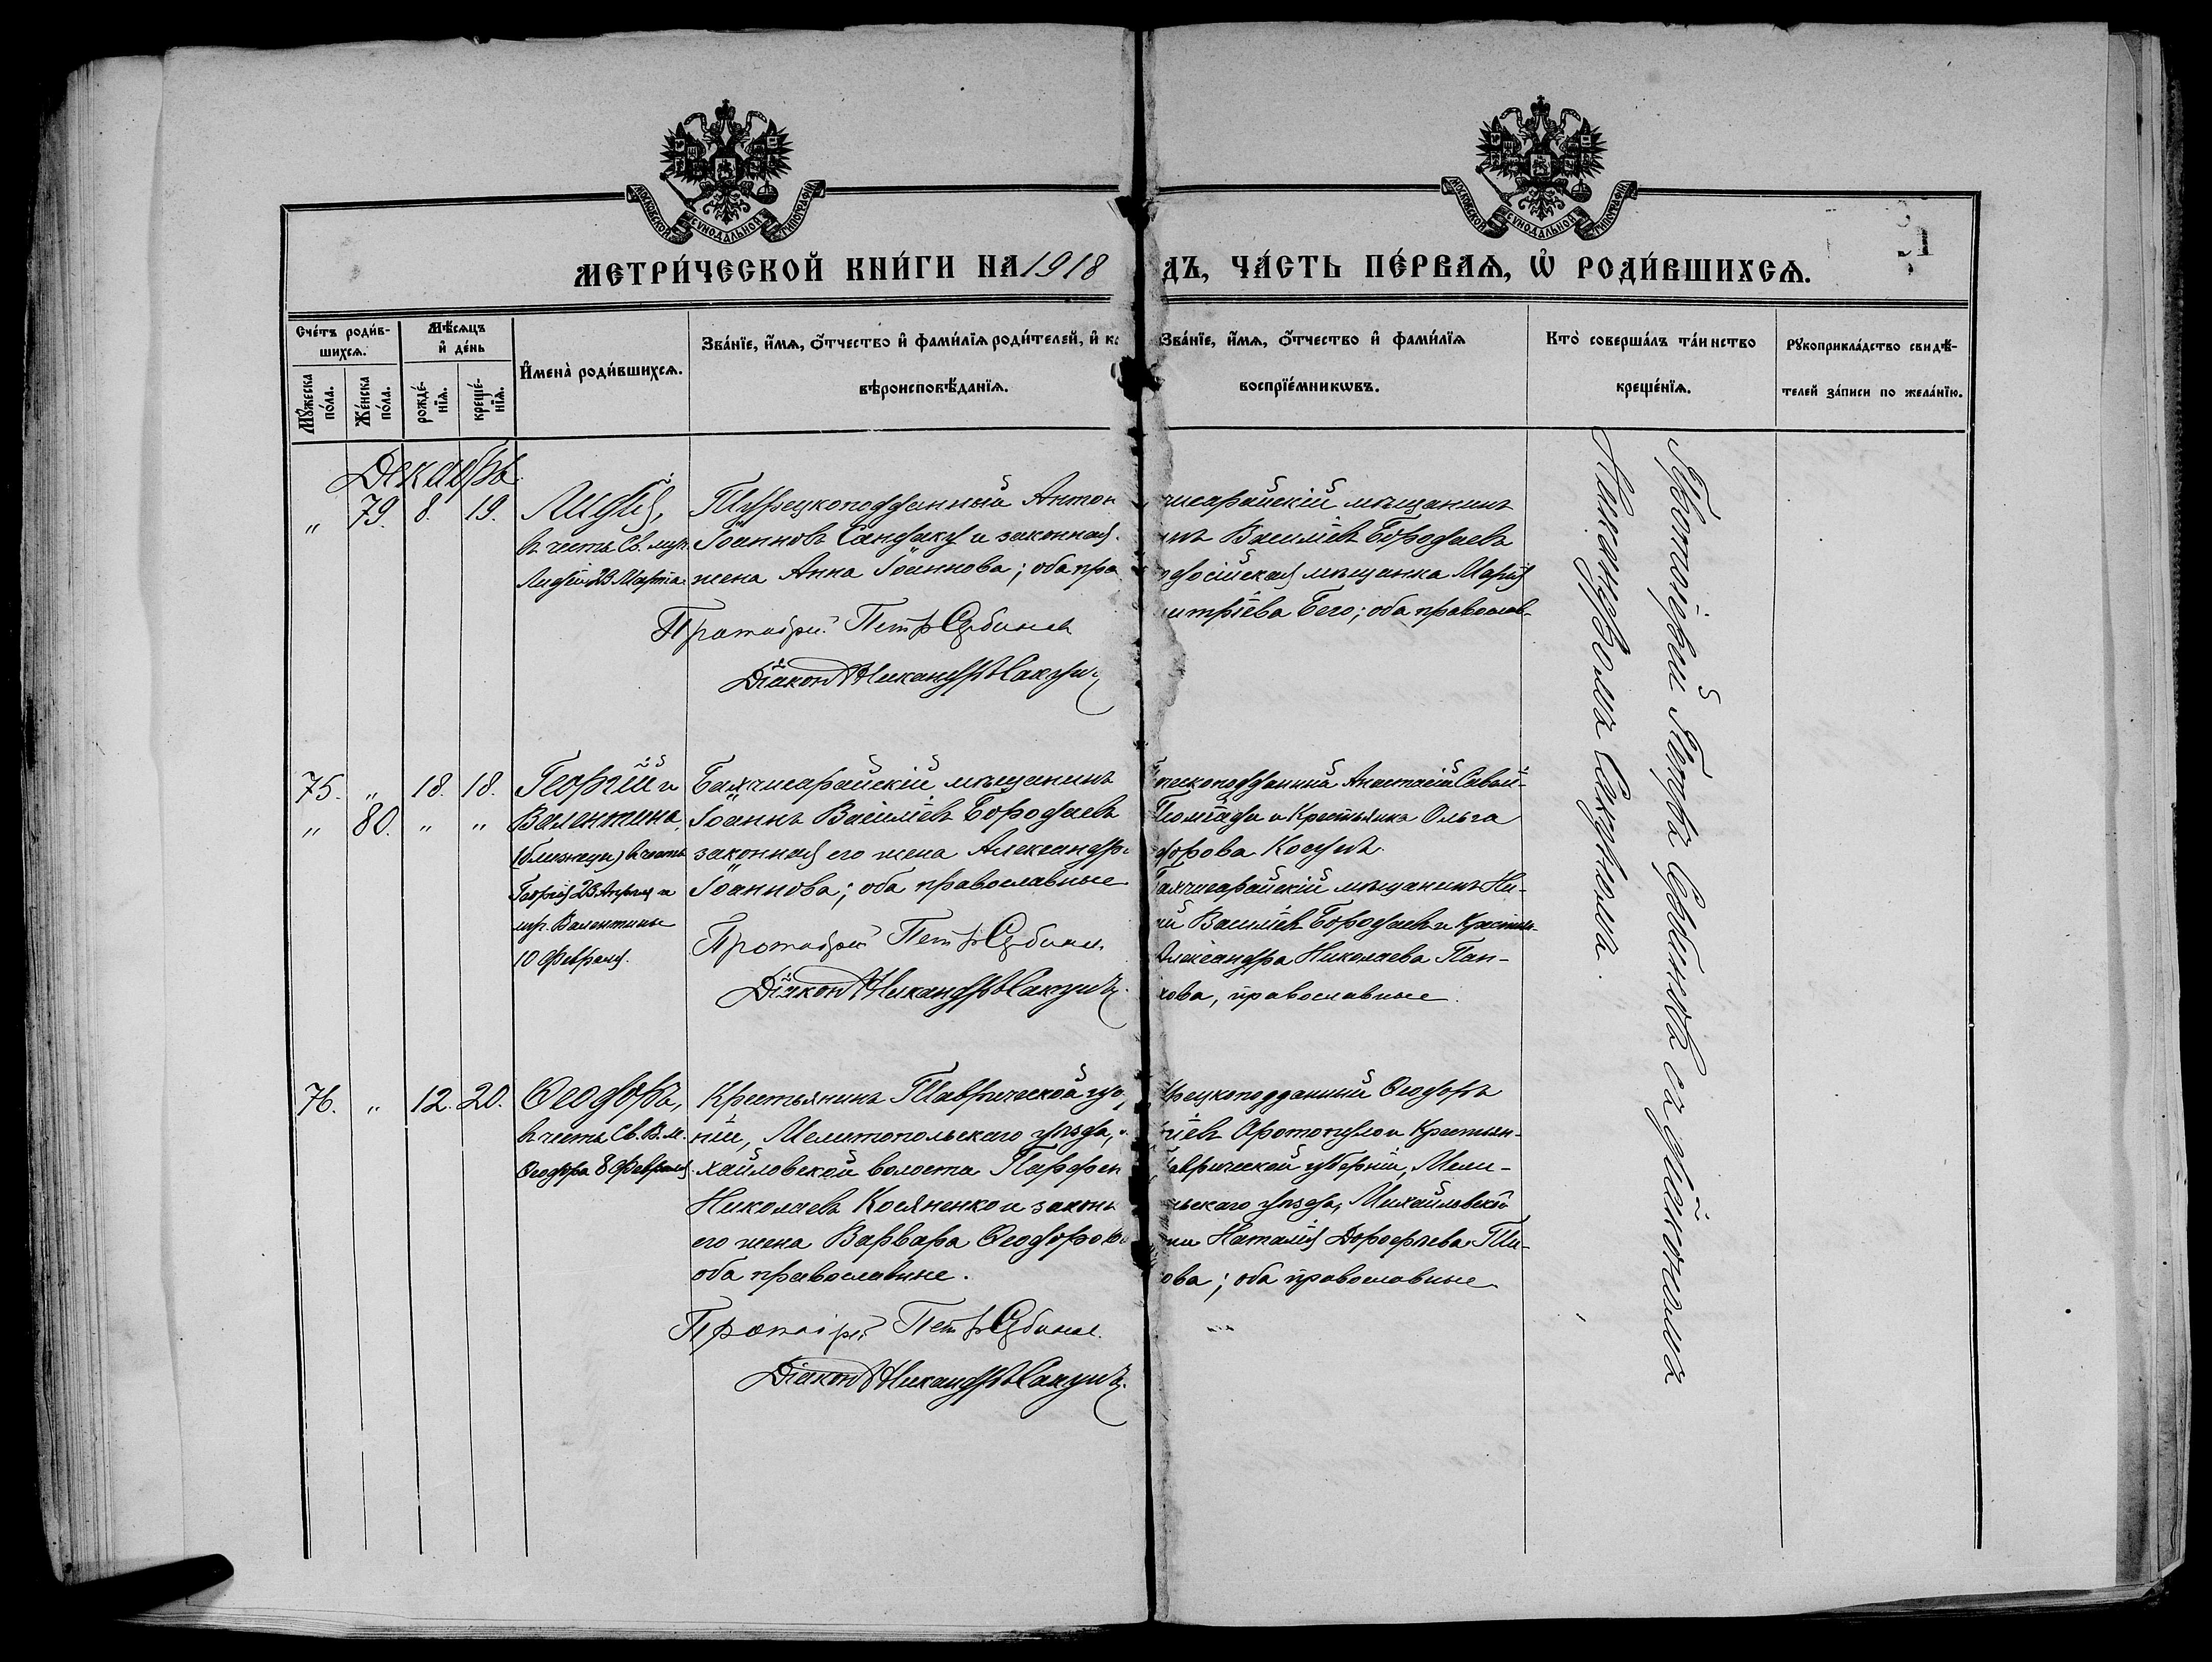 МОСКОВСКОЙ СѴНОДАЛЬНОЙ ТИПОГРАФІИ
МОСКОВСКОЙ СѴНОДАЛЬНОЙ ТИПОГРАФІИ
МЕТРИ́ЧЕСКОЙ КНИ́ГИ НА 1918
ДЪ, ЧА́СТЬ ПЕ́РВАѦ, Ѡ҆ РОДИ́ВШИХСѦ.
Сче́тъ роди́в-
шихсѧ.
Мꙋ́жеска
по́ла.
Же́нска
по́ла.
Мѣ́сѧцъ
и҆ де́нь
рожде́-
нїѧ.
креще́-
нїѧ.
И҆мена̀ роди́вшихсѧ.
Зва́нїе, и҆́мѧ, ѻ҆́тчество и҆ фами́лїѧ роди́телей, и҆ к
вѣроисповѣ́данїѧ.
Зва́нїе, и҆́мѧ, ѻ҆́тчество и҆ фами́лїѧ
воспрїе́мникѡвъ.
Кто̀ соверша́лъ та́инство
креще́нїѧ.
Рꙋкоприкла́дство свидѣ́-
телей за́писи по жела́нїю.
Декабрь
„ 79. 8. 19.
Лидія,
въ честь Св. муч.
Лидіи 23 Марта.
Турецкоподданный Антон
Іоанновъ Сандакъ и законная
жена Анна Іоаннова; оба пра
Протоіерей Петр Сербиновъ
Діаконъ Никандръ Сакунъ
чисарайскій мѣщанинъ
инъ Василіевъ Бородаевъ
одосійская мѣщанка Марія
митріева Бего; оба православ-
75. „ 18. 18.
„ 80. „ „
Георгій и
Валентина,
(близнецы) въ честь
Георгія 23 Апрѣля и
муч. Валентины
10 Февраля.
Бахчисарайскій мѣщанинъ
Іоаннъ Василіевъ Бородаевъ
законная его жена Александра
Іоаннова; оба православные
Протоіерей Петр Сербиновъ
Діаконъ Никандръ Сакунъ
ческоподданный Анастасій Савой-
и Крестьянка Ольга
дорова
Бахчисарайскій мѣщанинъ Ни-
ай Василіевъ Бородаевъ и Крестьян-
Александра Николаева Пан-
кова, православные.
76. „ 12. 20.
Ѳеодоръ,
въ честь Св. В. м.
Ѳеодора 8 Февраля
Крестьянинъ Таврической гу
ніи, Мелитопольскаго уѣзда,
хайловской волости Парфен
Николаевъ Косяненко и законн
его жена Варвара Ѳеодоров
оба православные.
Протоіерей Петр Сербиновъ
Діаконъ Никандръ Сакунъ
урецкоподданный Ѳеодоръ
ріевъ Афотопуло и Крестьян-
Таврической губерніи, Мели-
льскаго уѣзда, Михайловской
ти Наталія Дорофѣева Ти-
ова; оба православные
Протоіерей Петръ Сербиновъ съ діакономъ
Никандромъ Сакуномъ.